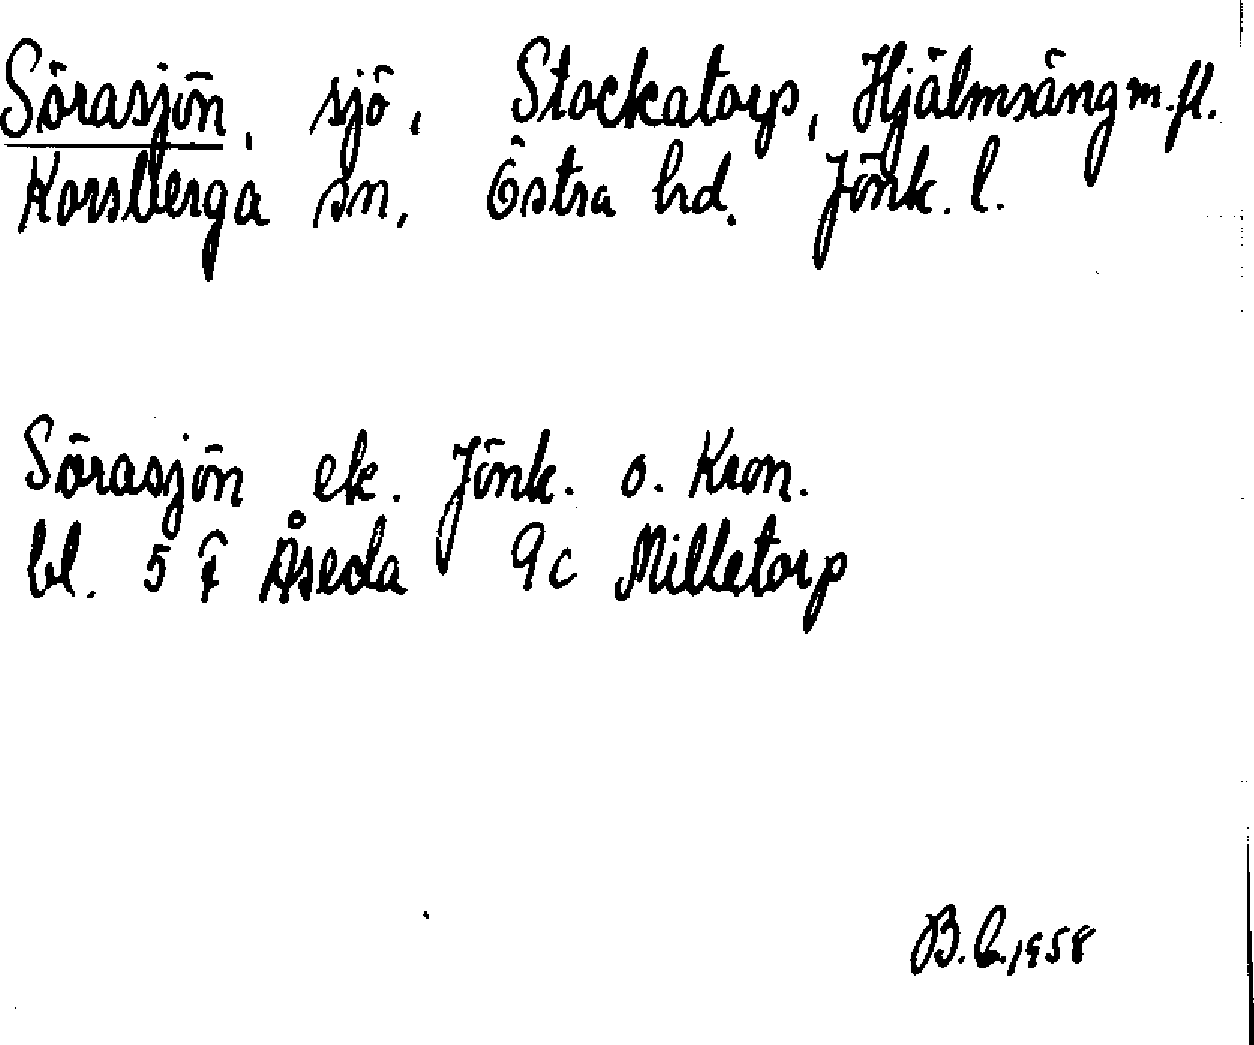 Sörasjön, sjö, Stockatorp, Hjälmsäng m.fl.
Korsberga sn, Östra hd. Jönk. l.
Sörasjön ek. Jönk. o. Kron.
bl. 5 f Åseda 9c Milletorp
B. 1958